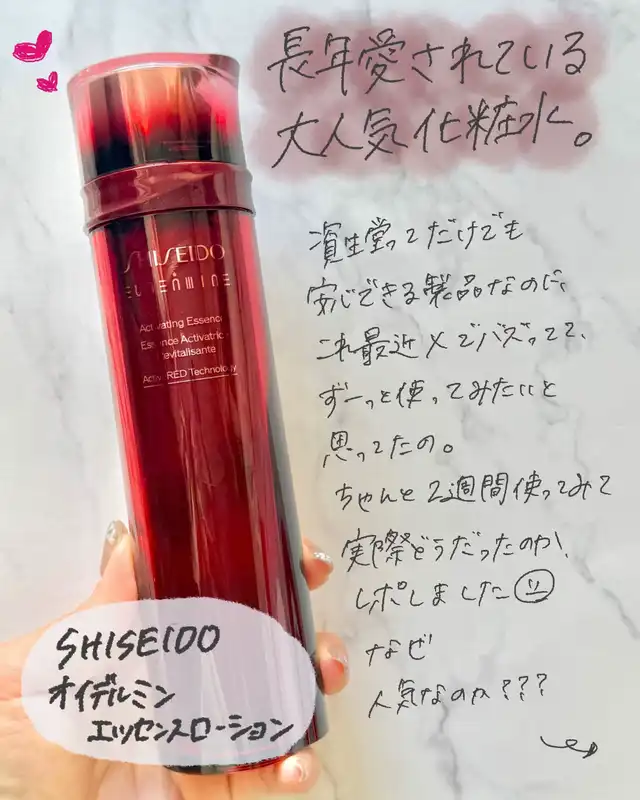 長年愛されている
大人気化粧水。
資生堂ってだけでも
安心できる製品なのに、
これ最近Xでバズってて、
ずーっと使ってみたいと
思ってたの。
ちゃんと2週間使ってみて
実際どうだったのか、
レポしました
なぜ
人気なのか???
SHISEIDO
EUDERMINE
Activating Essence
Essence Activatrice
revitalisante
RED Technology
SHISEIDO
オイデルミン
エッセンスローション